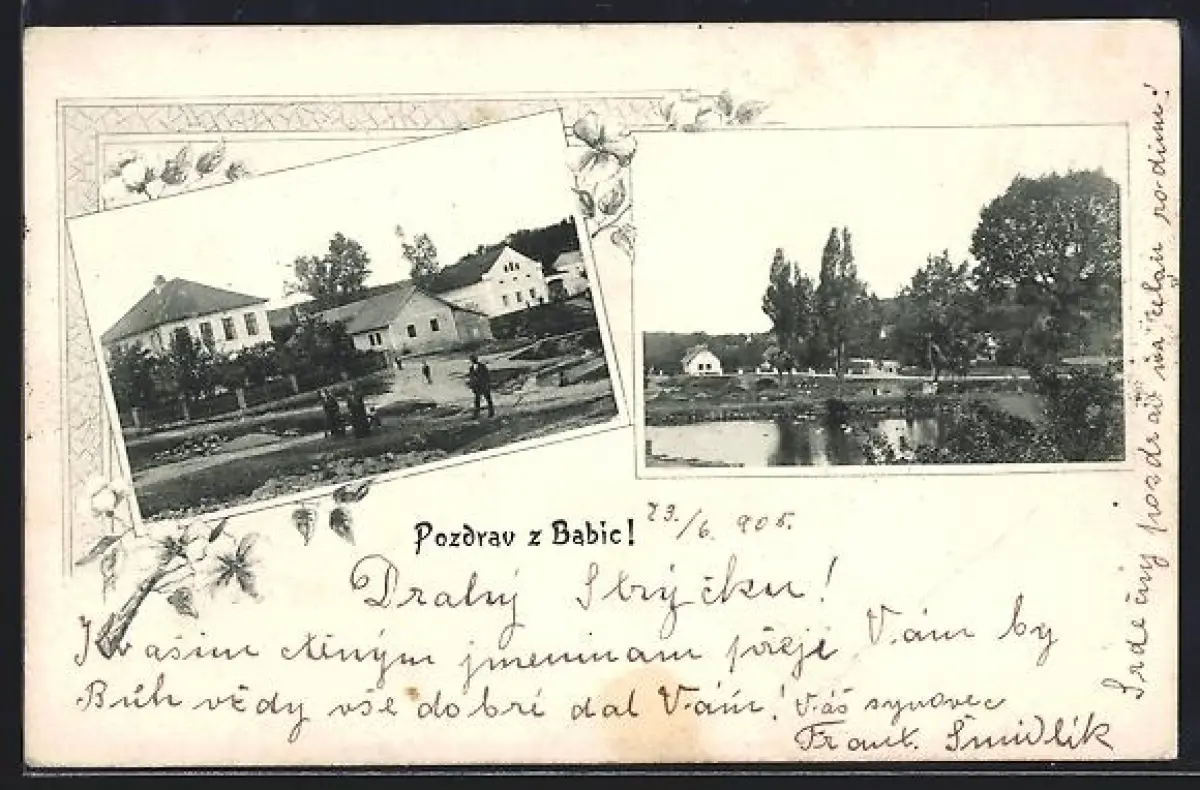 Pozdrav z Babic! 23./6. 905.
Drahý Strýčku!
K vašim ctěným jmeninam přeji Vám by
Bůh vždy vše dobré dal Vám! Váš synovec
Frant. Šmidlík
Srdečný pozdrav na celau rodinu!